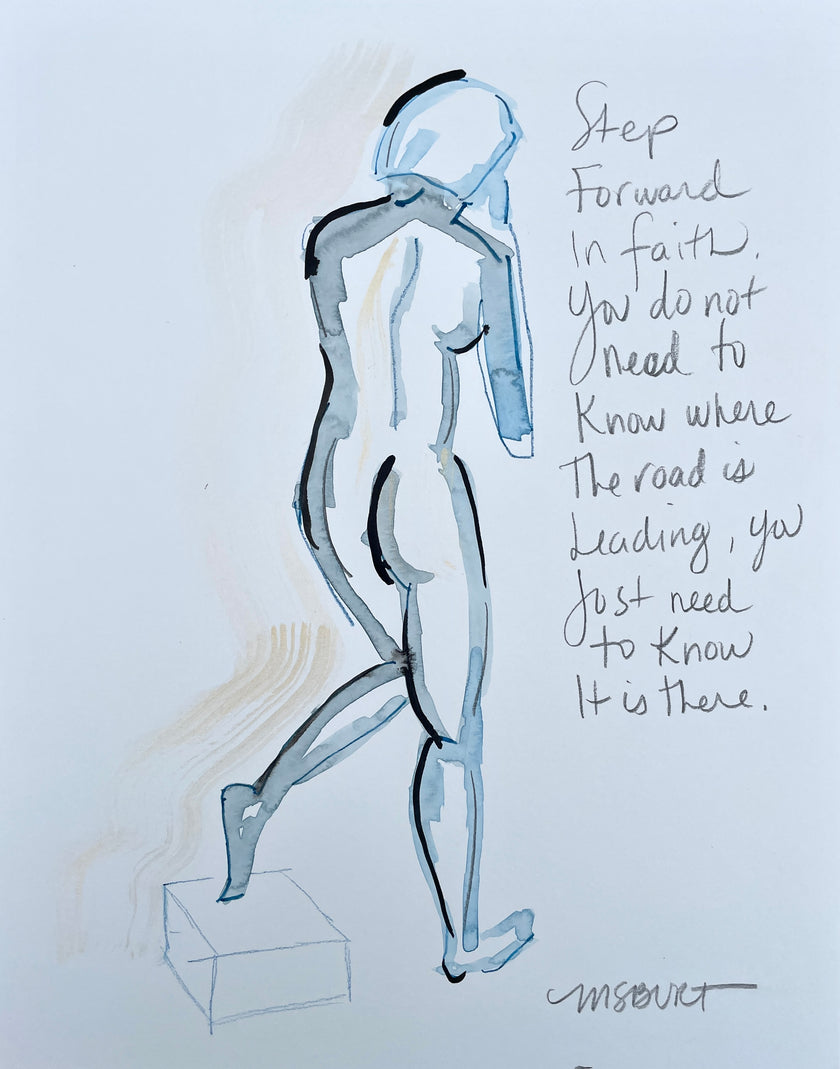 Step
Forward
In faith.
You do not
need to
Know where
The road is
Leading, you
Just need
to Know
It is there.
MSBURT